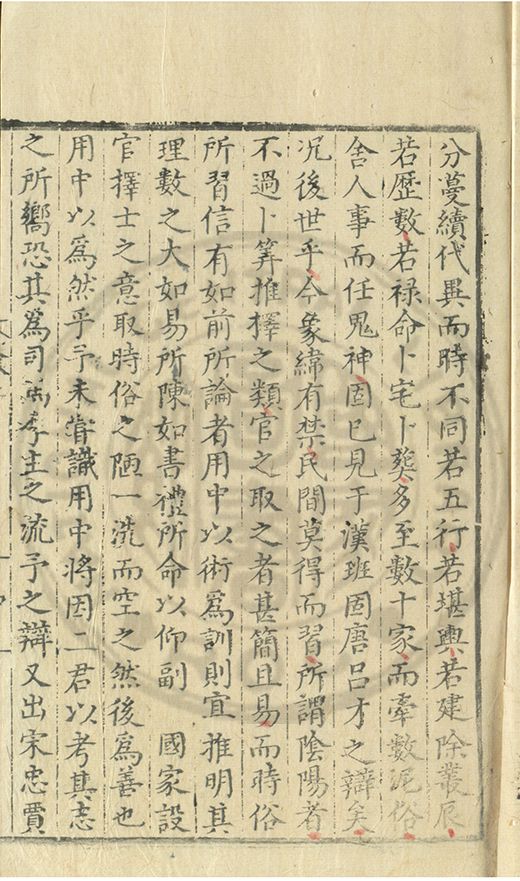 分蔓續代異而時不同若五行若堪輿若建除叢辰
若歷數若禄命卜宅卜葬多至數十家而牽數泥俗
舍人事而任鬼神固已見于漢班固唐呂才之辯矣
况後世乎今象緯有禁民間莫得而習所謂陰陽者
不過卜筭推擇之類官之取之者甚簡且易而時俗
所習信有如前所論者用中以術為訓則宜推明其
理數之大如易所陳如書禮所命以仰副　國家設
官擇士之意取時俗之陋一洗而空之然後為善也
用中以為然乎予未甞識用中將因二君以考其志
之所嚮恐其為司馬季主之流予之辯又出宋忠賈